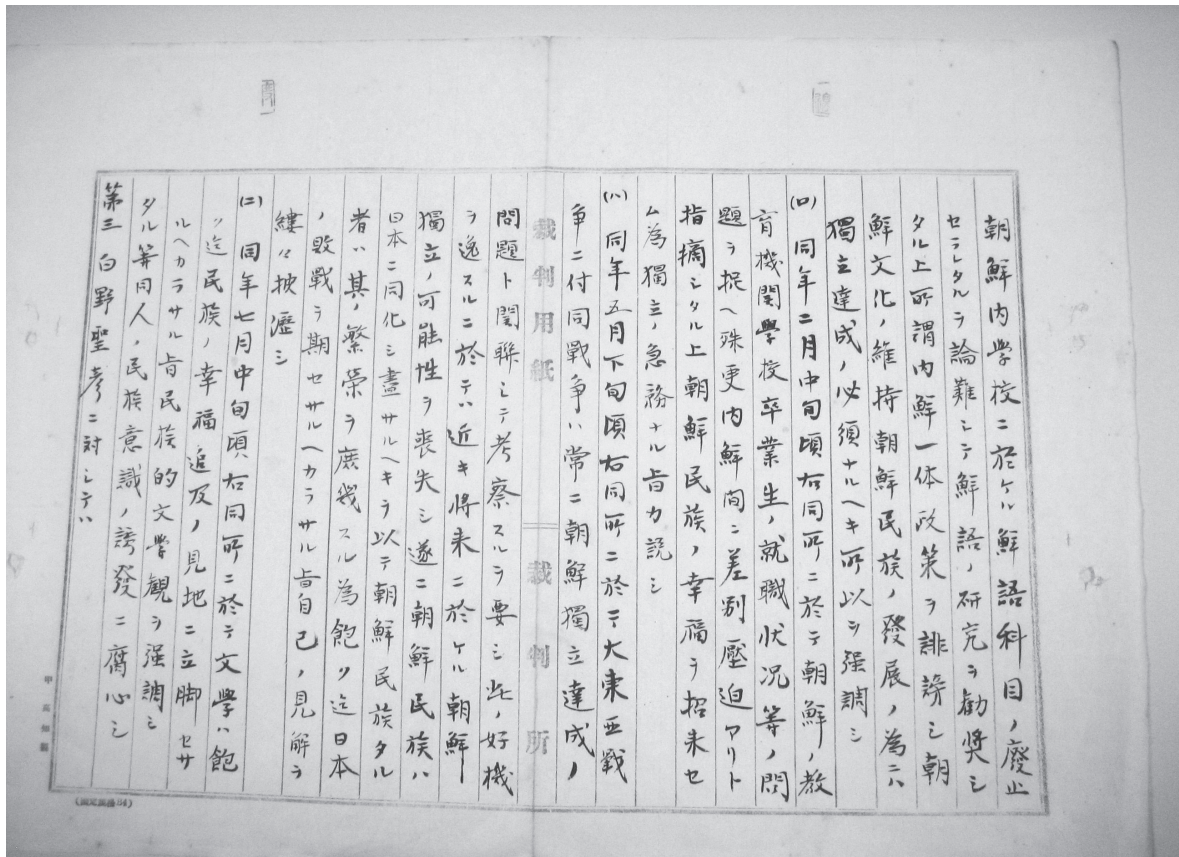 朝鮮内学校ニ於ケル鮮語科目ノ廢止
セラレタルヲ論難シテ鮮語ノ研究ヲ勧奬シ
タル上所謂内鮮一体政策ヲ誹謗シ朝
鮮文化ノ維持朝鮮民族ノ發展ノ為ニハ
獨立達成ノ必須ナルヘキ所以ヲ强調シ
(ロ) 同年二月中旬頃右同所ニ於テ朝鮮ノ教
育機関學校卒業生ノ就職状况等ノ問
題ヲ捉ヘ殊更内鮮間ニ差別壓迫アリト
指摘シタル上朝鮮民族ノ幸福ヲ招来セ
ム為獨立ノ急務ナル旨力説シ
(ハ) 同年五月下旬頃右同所ニ於テ大東亜戦
争ニ付同戦争ハ常ニ朝鮮獨立達成ノ
裁判用紙 裁判所
問題ト関聯シテ考察スルヲ要シ此ノ好機
ヲ逸スルニ於テハ近キ将来ニ於ケル朝鮮
獨立ノ可能性ヲ喪失シ遂ニ朝鮮民族ハ
日本ニ同化シ盡サルヘキヲ以テ朝鮮民族タル
者ハ其ノ繁榮ヲ庶幾スル為飽ク迄日本
ノ敗戦ヲ期セサルヘカラサル旨自己ノ見解ヲ
縷々披瀝シ
(ニ) 同年七月中旬頃右同所ニ於テ文學ハ飽
ク迄民族ノ幸福追及ノ見地ニ立脚セサ
ルヘカラサル旨民族的文學観ヲ强調シ
タル等同人ノ民族意識ノ誘發ニ腐心シ
第三 白野聖彦ニ対シテハ